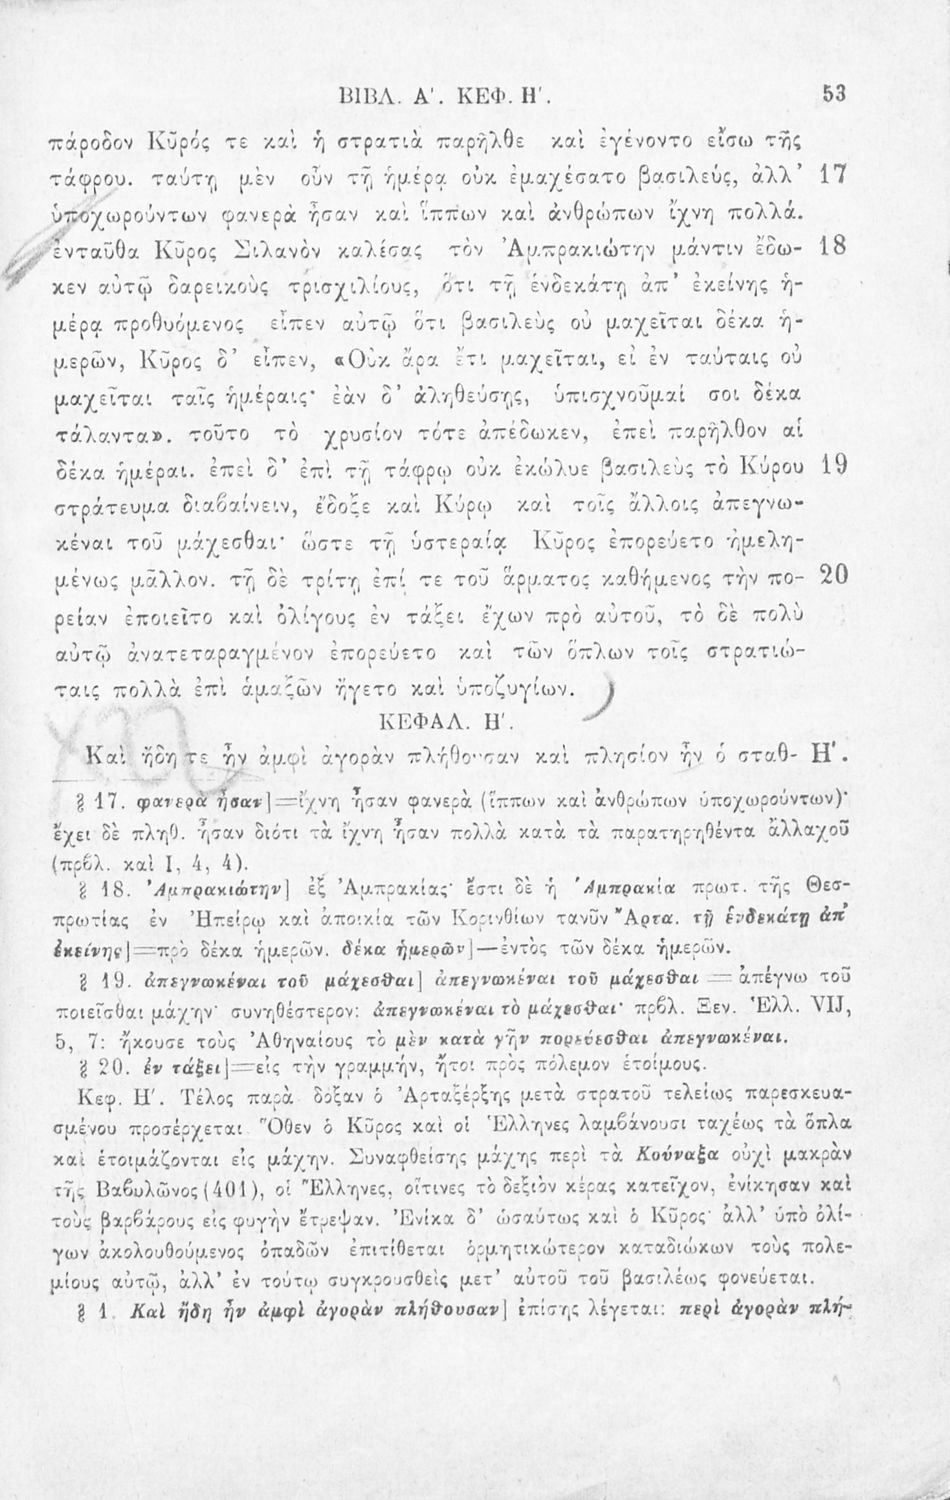 ΒΙΒΛ. Α'. ΚΕΦ. Η'. 53
πάροδον Κῦρός τε καὶ ἡ στρατιὰ παρῆλθε καὶ ἐγένοντο εἴσω τῆς
τάφρου. ταύτῃ μὲν οὖν τῇ ἡμέρᾳ οὐκ ἐμαχέσατο βασιλεύς, ἀλλ' 17
ὑποχωρούντων φανερὰ ἦσαν καὶ ἵππων καὶ ἀνθρώπων ἴχνη πολλά.
ἐνταῦθα Κῦρος Σιλανὸν καλέσας τὸν Ἀμπρακιώτην μάντιν ἔδω- 18
κεν αὐτῷ δαρεικοὺς τρισχιλίους, ὅτι τῇ ἑνδεκάτῃ ἀπ' ἐκείνης ἡ-
μέρᾳ προθυόμενος εἶπεν αὐτῷ ὅτι βασιλεὺς οὐ μαχεῖται δέκα ἡ-
μερῶν, Κῦρος δ' εἶπεν, «Οὐκ ἄρα ἔτι μαχεῖται, εἰ ἐν ταύταις οὐ
μαχεῖται ταῖς ἡμέραις· ἐὰν δ' ἀληθεύσῃς, ὑπισχνοῦμαί σοι δέκα
τάλαντα». τοῦτο τὸ χρυσίον τότε ἀπέδωκεν, ἐπεὶ παρῆλθον αἱ
δέκα ἡμέραι. ἐπεὶ δ' ἐπὶ τῇ τάφρῳ οὐκ ἐκώλυε βασιλεὺς τὸ Κύρου 19
στράτευμα διαβαίνειν, ἔδοξε καὶ Κύρῳ καὶ τοῖς ἄλλοις ἀπεγνω-
κέναι τοῦ μάχεσθαι· ὥστε τῇ ὑστεραίᾳ Κῦρος ἐπορεύετο ἠμελη-
μένως μᾶλλον. τῇ δὲ τρίτῃ ἐπί τε τοῦ ἅρματος καθήμενος τὴν πο- 20
ρείαν ἐποιεῖτο καὶ ὀλίγους ἐν τάξει ἔχων πρὸ αὑτοῦ, τὸ δὲ πολὺ
αὐτῷ ἀνατεταραγμένον ἐπορεύετο καὶ τῶν ὅπλων τοῖς στρατιώ-
ταις πολλὰ ἐπὶ ἁμαξῶν ἤγετο καὶ ὑποζυγίων.
ΚΕΦΑΛ. Η'.
Καὶ ἤδη τε ἦν ἀμφὶ ἀγορὰν πλήθουσαν καὶ πλησίον ἦν ὁ σταθ- Η'.
§ 17. φανερὰ ἦσαν]=ἴχνη ἦσαν φανερὰ (ἵππων καὶ ἀνθρώπων ὑποχωρούντων)·
ἔχει δὲ πληθ. ἦσαν διότι τὰ ἴχνη ἦσαν πολλὰ κατὰ τὰ παρατηρηθέντα ἀλλαχοῦ
(πρβλ. καὶ I, 4, 4).
§ 18. Ἀμπρακιώτην] ἐξ Ἀμπρακίας· ἔστι δὲ ἡ Ἀμπρακία πρωτ. τῆς Θεσ-
πρωτίας ἐν Ἠπείρῳ καὶ ἀποικία τῶν Κορινθίων τανῦν Ἄρτα. τῇ ἑνδεκάτῃ ἀπ'
ἐκείνης]=πρὸ δέκα ἡμερῶν. δέκα ἡμερῶν]—ἐντὸς τῶν δέκα ἡμερῶν.
§ 19. ἀπεγνωκέναι τοῦ μάχεσθαι] ἀπεγνωκέναι τοῦ μάχεσθαι = ἀπέγνω τοῦ
ποιεῖσθαι μάχην· συνηθέστερον: ἀπεγνωκέναι τὸ μάχεσθαι· πρβλ. Ξεν. Ἑλλ. VII,
5, 7: ἤκουσε τοὺς Ἀθηναίους τὸ μὲν κατὰ γῆν πορεύεσθαι ἀπεγνωκέναι.
§ 20. ἐν τάξει]=εἰς τὴν γραμμήν, ἤτοι πρὸς πόλεμον ἑτοίμους.
Κεφ. Η'. Τέλος παρὰ δόξαν ὁ Ἀρταξέρξης μετὰ στρατοῦ τελείως παρεσκευα-
σμένου προσέρχεται. Ὅθεν ὁ Κῦρος καὶ οἱ Ἕλληνες λαμβάνουσι ταχέως τὰ ὅπλα
καὶ ἑτοιμάζονται εἰς μάχην. Συναφθείσης μάχης περὶ τὰ Κούναξα οὐχὶ μακρὰν
τῆς Βαβυλῶνος (401), οἱ Ἕλληνες, οἵτινες τὸ δεξιὸν κέρας κατεῖχον, ἐνίκησαν καὶ
τοὺς βαρβάρους εἰς φυγὴν ἔτρεψαν. Ἐνίκα δ' ὡσαύτως καὶ ὁ Κῦρος· ἀλλ' ὑπὸ ὀλί-
γων ἀκολουθούμενος ὀπαδῶν ἐπιτίθεται ὁρμητικώτερον καταδιώκων τοὺς πολε-
μίους αὐτῷ, ἀλλ' ἐν τούτῳ συγκρουσθεὶς μετ' αὐτοῦ τοῦ βασιλέως φονεύεται.
§ 1. Καὶ ἤδη ἦν ἀμφὶ ἀγορὰν πλήθουσαν] ἐπίσης λέγεται: περὶ ἀγορὰν πλή-